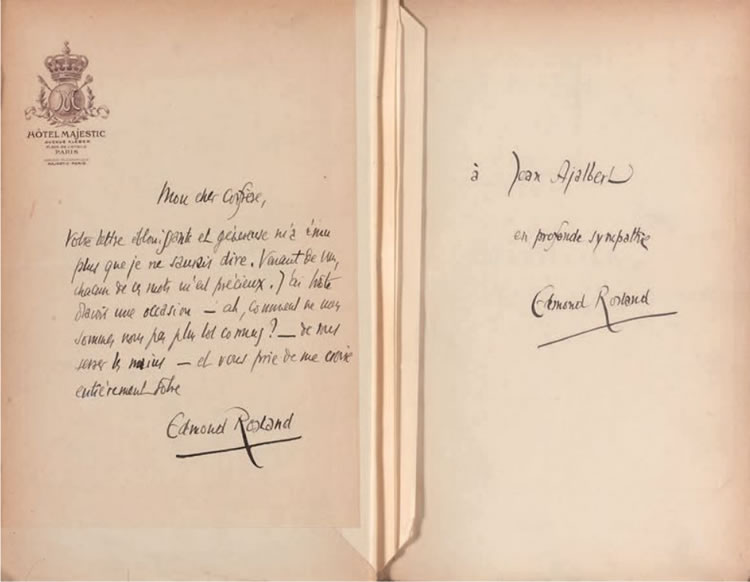 HÔTEL MAJESTIC
AVENUE KLÉBER
PLACE DE L'ÉTOILE
PARIS
MAJESTIC-PARIS
Mon cher Confrère,
Votre lettre éblouissante et généreuse m'a ému
plus que je ne saurais dire. Venant de vous,
chacun de ces mots m'est précieux. J'ai hâte
d'avoir une occasion — ah, comment ne nous
sommes nous pas plus tôt connus ? — de vous
serrer les mains — et vous prie de me croire
entièrement vôtre
Edmond Rostand
à Jean Ajalbert
en profonde sympathie
Edmond Rostand